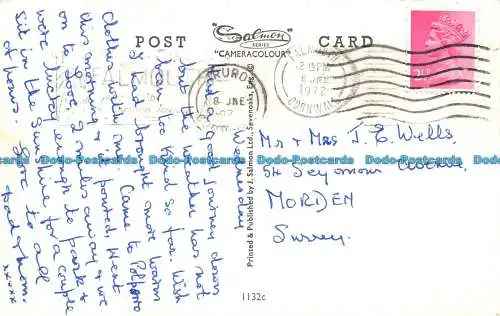 POST
Salmon
SERIES
"CAMERACOLOUR"
CARD
FALMOUTH
TRURO
8 JNE
1972
CORNWALL
2 15PM
8 JNE
1972
CORNWALL
Wednesday
Had a good journey down
but the weather has not
been too kind so far. Wish
I had brought more warm
clothes with me. Came to Polperro
this morning & it poured. Went
on to Looe, 2 miles away & we
were lucky enough to park &
sit in the Sunshine for a couple
of hours. Love to all
Dad & Mum.
xxxxx
Printed & Published by J. Salmon Ltd., Sevenoaks, Eng. ©
Mr & Mrs J. E. Wells,
54 Seymour Avenue
MORDEN
Surrey.
1132c
Dodo-Postcards Dodo-Postcards Dodo-Postcards Dodo-Postcards Dodo-Postcards